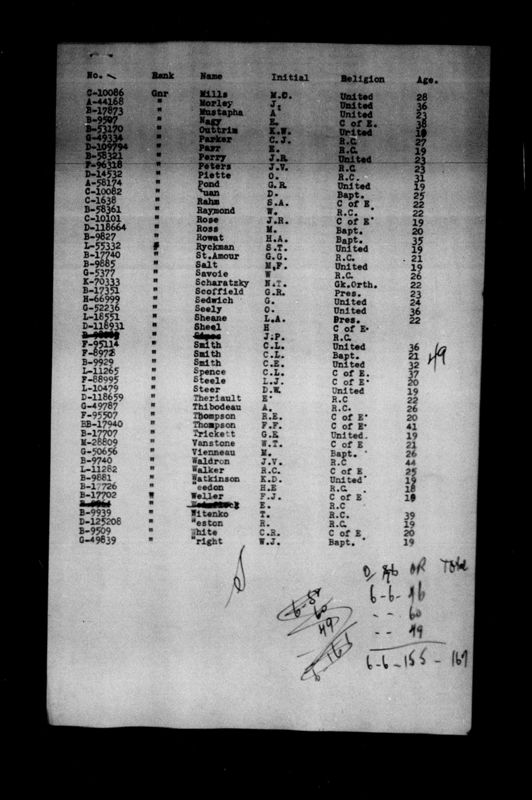 No. Rank Name Initial Religion Age.
C-10086 Gnr Mills M.C. United 28
A-44168 " Morley J. United 36
B-17873 " Mustapha A United 23
B-9507 " Nagy E. C of E. 38
B-53170 " Outtrim K.W. United
G-49334 " Parker C.J. R.C. 27
D-109794 " Parr E. R.C. 19
B-58321 " Perry J.R. United 23
F-96318 " Peters J.V. R.C. 23
D-14532 " Piette O. R.C. 31
A-58174 " Pond G.R. United 19
A-10082 " uan D. Bapt. 25
C-1638 " Rahm S.A. C of E. 22
B-58361 " Raymond W. R.C. 22
C-10101 " Rose J.R. C of E 19
D-118664 " Ross M. Bapt. 20
B-9827 " Rowat H.A. Bapt. 35
L-55332 " Ryckman S.T. United 19
B-17740 " St.Amour G.G. R.C. 21
B-9885 " Salt M.F. United 19
G-5377 " Savoie W R.C. 26
K-70333 " Scharatzky N.T. Gk.Orth. 22
B-17351 " Scoffield G.R. Pres. 23
H-66999 " Sedwich G. United 24
G-52236 " Seely O. United 36
L-18551 " Sheane L.A. Pres. 22
D-118931 " Sheel H C of E.
" J.P. R.C.
F-95114 " Smith C.L. United 36
F-8972 " Smith C.L. Bapt. 21
B-9929 " Smith C.E. United 32
L-11265 " Spence C.L. C of E. 37
F-88995 " Steele L.J. C of E 20
L-10479 " Steer D.W. United 19
D-118659 " Theriault E R.C 22
G-49787 " Thibodeau A. R.C. 26
F-95507 " Thompson R.E. C of E 20
BB-17940 " Thompson F.F. C of E 41
B-17707 " Trickett G.E United. 19
M-28809 " Vanstone W.T. C of E 21
G-50656 " Vienneau M. Bapt. 26
B-9740 " Waldron J.V. R.C 44
L-11282 " Walker R.C. C of E 25
B-9881 " Watkinson K.D. United 19
B-17726 " eedon H.E R.C. 18
B-17702 " Weller F.J. C of E
" E. R.C
B-9939 " Witenko T. R.C. 39
D-125208 " eston R. R.C. 19
B-9509 " hite C.R. C of E 20
G-49839 " right W.J. Bapt. 19
49
OR Total
6-6- 46
-- 60
-- 49
6-6-155-167
60
49